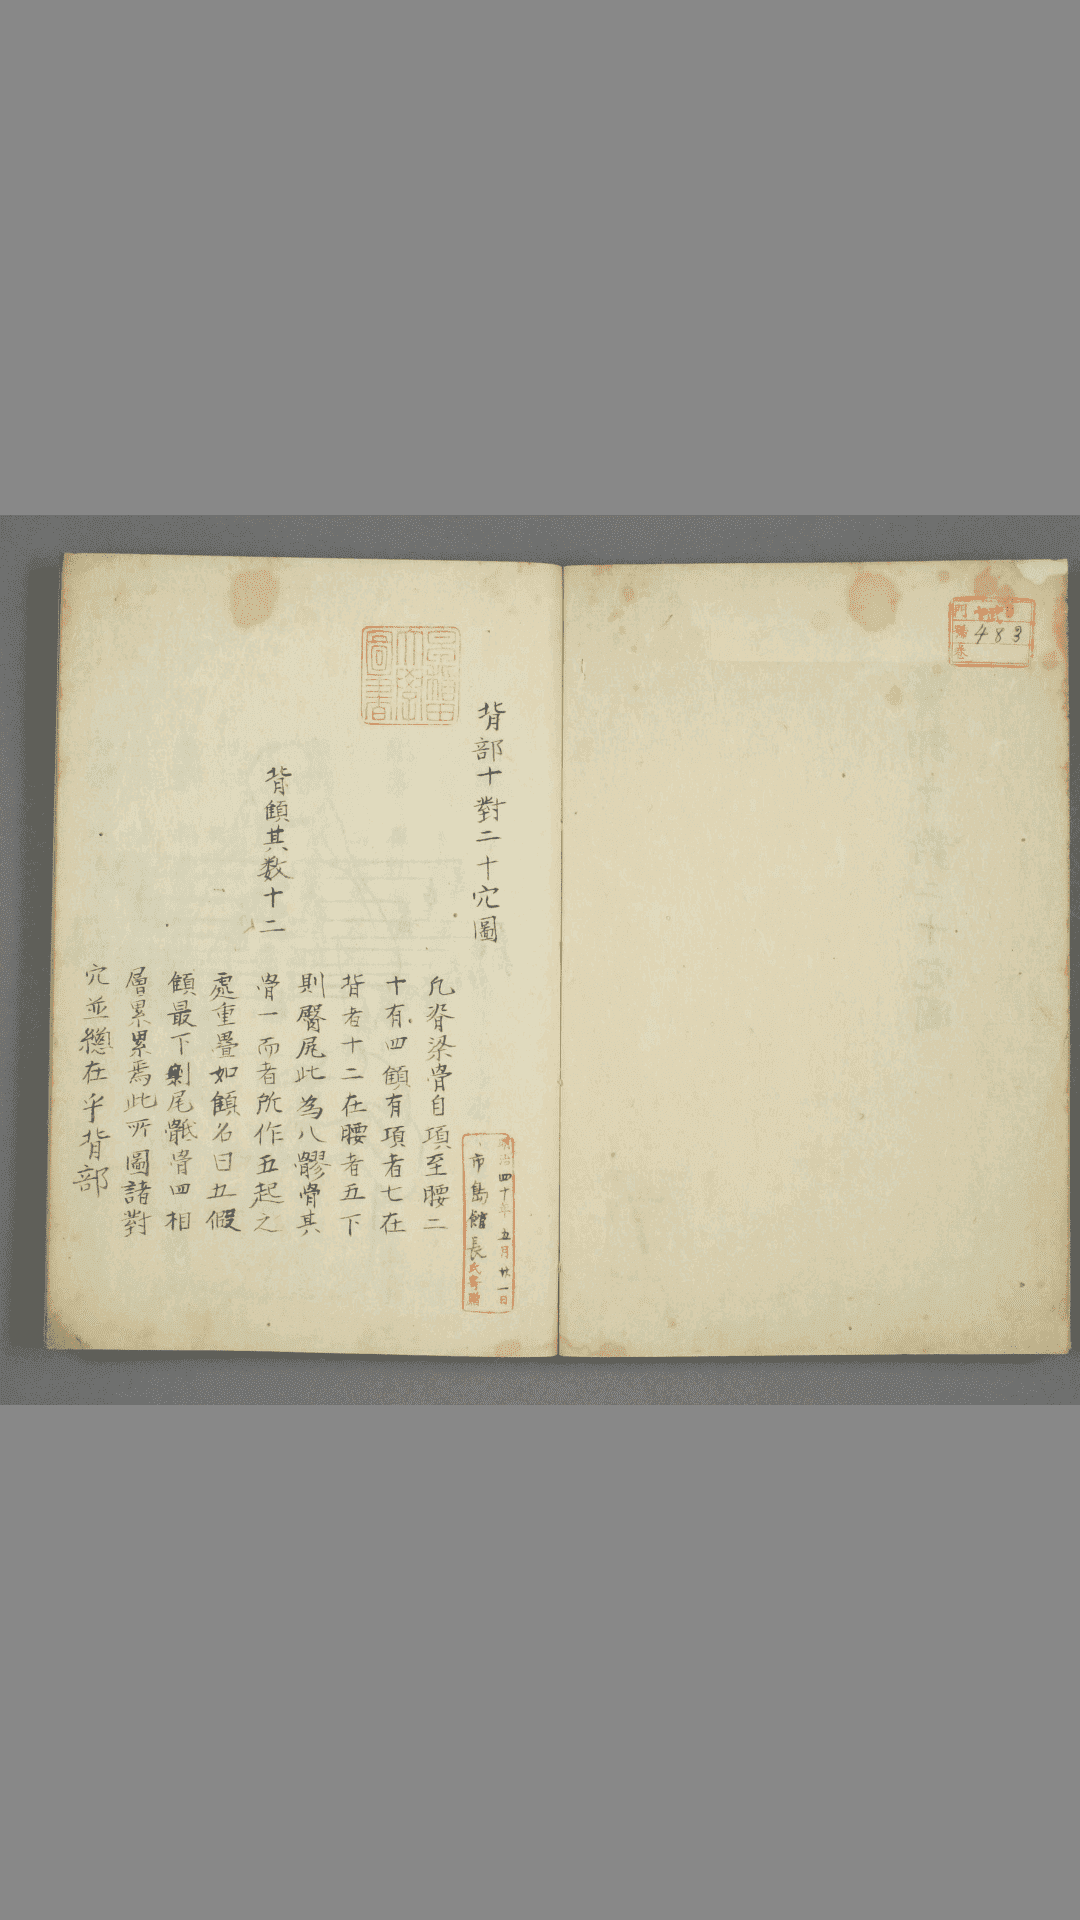 門
483
番
巻
背部十對二十穴圖
早稲田
大學
圖書
背顀其数十二
凡脊梁骨自項至腰二
十有四顀有項者七在
背者十二在腰者五下
則臀尻此為八髎骨其
骨一而者所作五起之
處重疊如顀名曰五假
顀最下剿尾骶骨四相
層累累焉此所圖諸對
穴並總在乎背部
明治四十年五月廿一日
市島館長氏寄贈